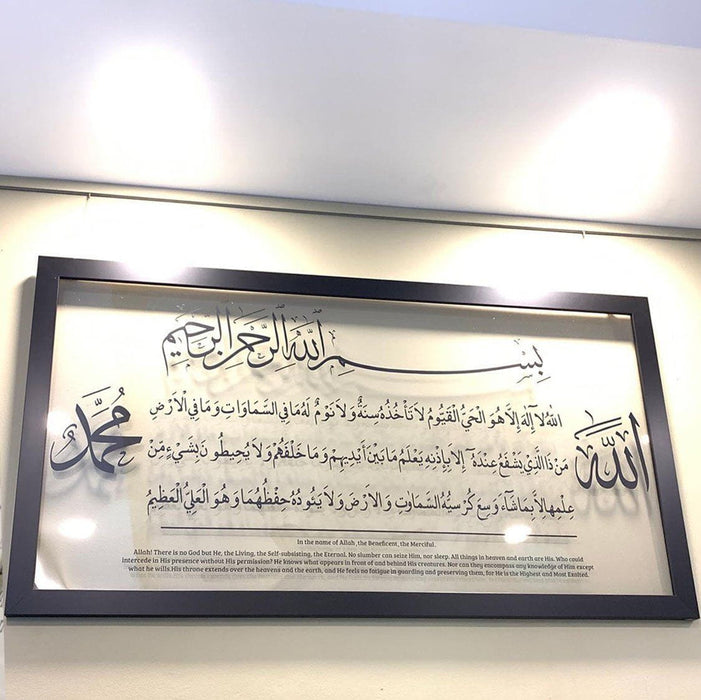 بِسْمِ اللهِ الرَّحْمٰنِ الرَّحِيْمِ
الله
محمد
اللهُ لَا إِلٰهَ إِلَّا هُوَ الْحَيُّ الْقَيُّومُ لَا تَأْخُذُهُ سِنَةٌ وَلَا نَوْمٌ لَهُ مَا فِي السَّمَاوَاتِ وَمَا فِي الْأَرْضِ
مَنْ ذَا الَّذِي يَشْفَعُ عِنْدَهُ إِلَّا بِإِذْنِهِ يَعْلَمُ مَا بَيْنَ أَيْدِيهِمْ وَمَا خَلْفَهُمْ وَلَا يُحِيطُونَ بِشَيْءٍ مِّنْ
عِلْمِهِ إِلَّا بِمَا شَآءَ وَسِعَ كُرْسِيُّهُ السَّمَاوَتِ وَالْأَرْضَ وَلَا يَئُودُهُ حِفْظُهُمَا وَهُوَ الْعَلِيُّ الْعَظِيمُ
In the name of Allah ,the Beneficent, the Merciful.
Allah! There is no God but He, the Living, the Self-subsisting, the Eternal. No slumber can seize Him, nor sleep. All things in heaven and earth are His. Who could
intercede in His presence without His permission? He knows what appears in front of and behind His creatures. Nor can they encompass any knowledge of Him except
what he wills.His throne extends over the heavens and the earth, and He feels no fatigue in guarding and preserving them, for He is the Highest and Most Exalted.